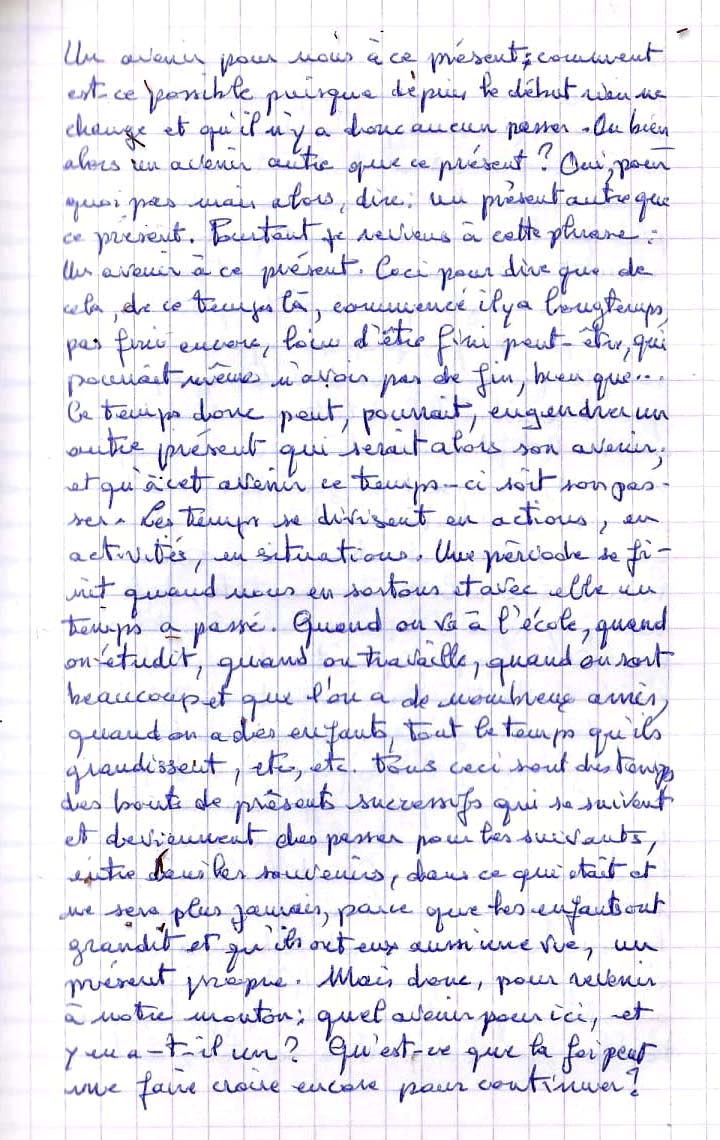 Un avenir pour nous à ce présent; comment
est-ce possible puisque depuis le début rien ne
change et qu'il n'y a donc aucun passer. Ou bien
alors un avenir autre que ce présent? Oui, pour
quoi pas mais alors, dire: un présent autre que
ce présent. Pourtant je reviens à cette phrase:
Un avenir à ce présent. Ceci pour dire que de
cela, de ce temps là, commencé il y a longtemps,
pas fini encore, loin d'être fini peut-être, qui
pourrait même n'avoir pas de fin, bien que...
Ce temps donc peut, pourrait, engendrer un
autre présent qui serait alors son avenir,
et qu'à cet avenir ce temps-ci soit son pas-
ser. Les temps se divisent en actions, en
activités, en situations. Une période se fi-
nit quand nous en sortons et avec elle un
temps a passé. Quand on va à l'école, quand
on étudit, quand on travaille, quand on sort
beaucoup et que l'on a de nombreux amis,
quand on a des enfants, tout le temps qu'ils
grandissent, etc, etc. tous ceci sont des temps
des bouts de présents successifs qui se suivent
et deviennent des passer pour les suivants,
entre dans les souvenirs, dans ce qui était et
ne sera plus jamais, parce que les enfants ont
grandit et qu'ils ont eux aussi une vie, un
présent propre. Mais donc, pour revenir
à notre mouton: quel avenir pour ici, et
y en a-t-il un? Qu'est-ce que la foi peut
me faire croire encore pour continuer?